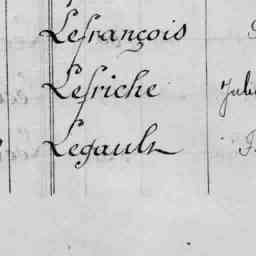 Lefrançois
Lefriche
Legault